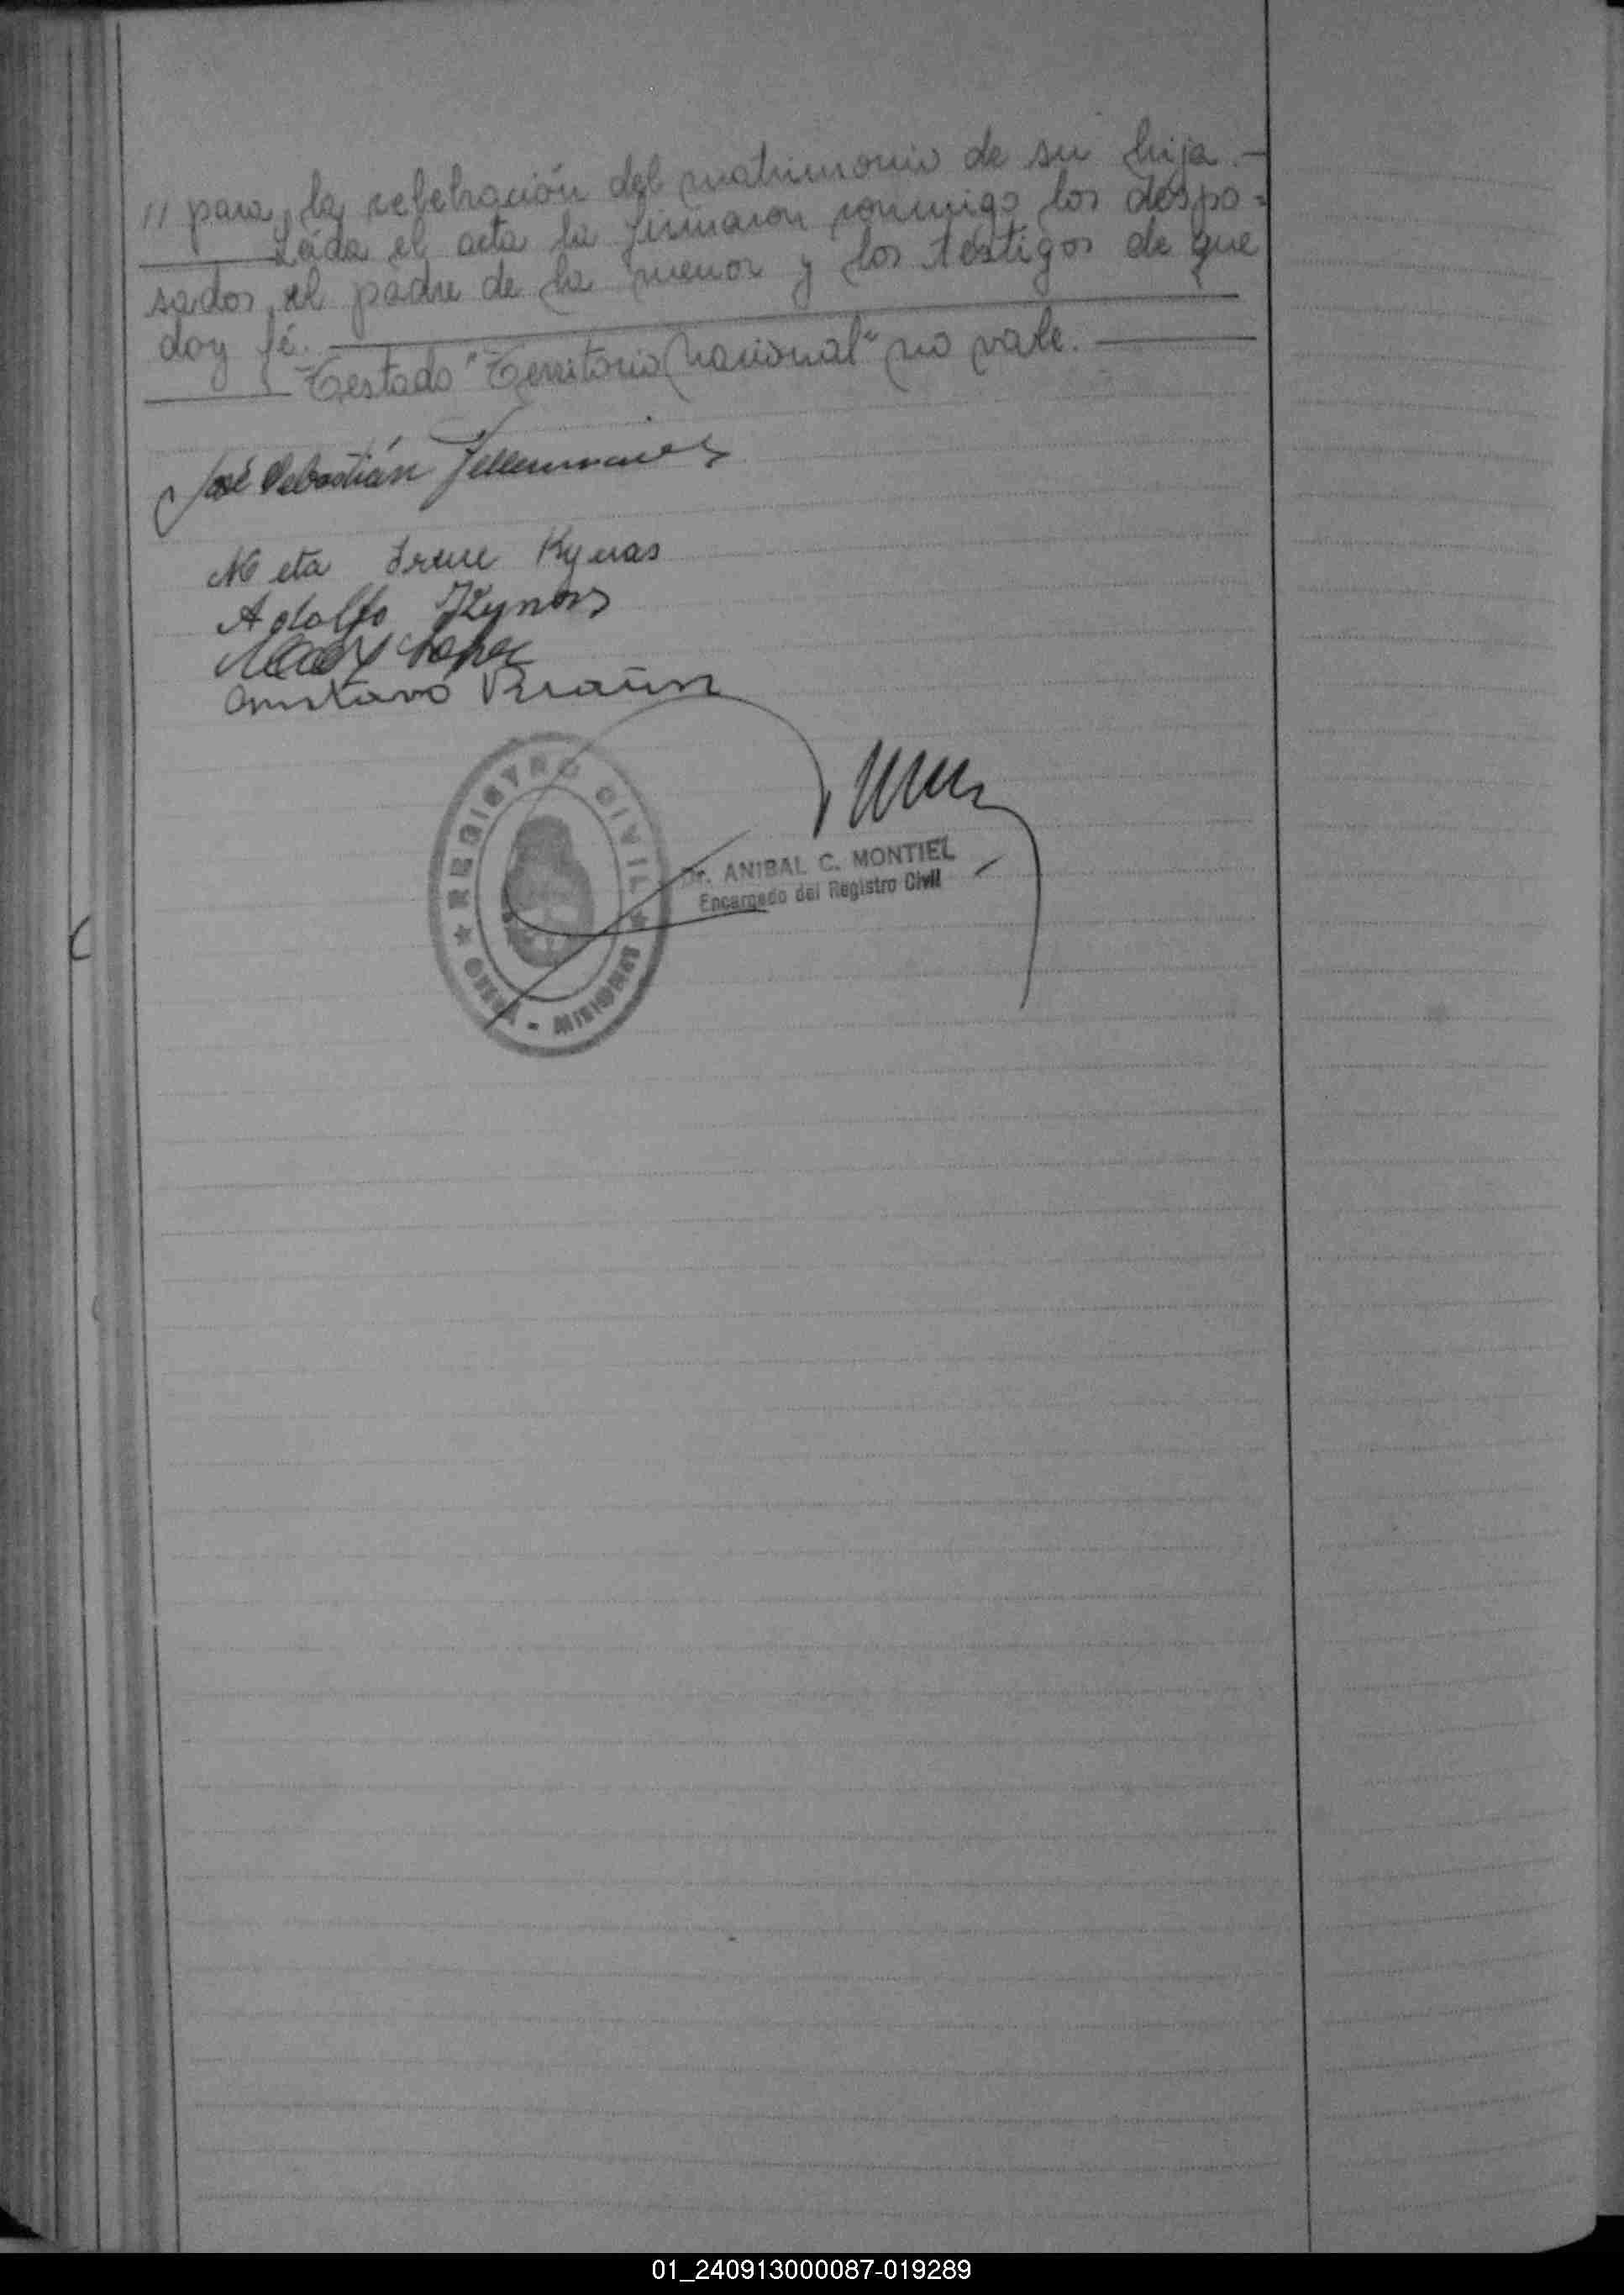 // para la celebración del matrimonio de su hija.—
Leida el acta la firmaron conmigo los despo=
sados, el padre de la menor y los testigos de que
doy fé.
Testado "Territorio Nacional" no vale.
José Sebastián
Meta Irene Kynas
Adolfo Kynas
Gustavo Braun
REGISTRO CIVIL
★ OBERA - MISIONES ★
Dr. ANIBAL C. MONTIEL
Encargado del Registro Civil
01_240913000087-019289